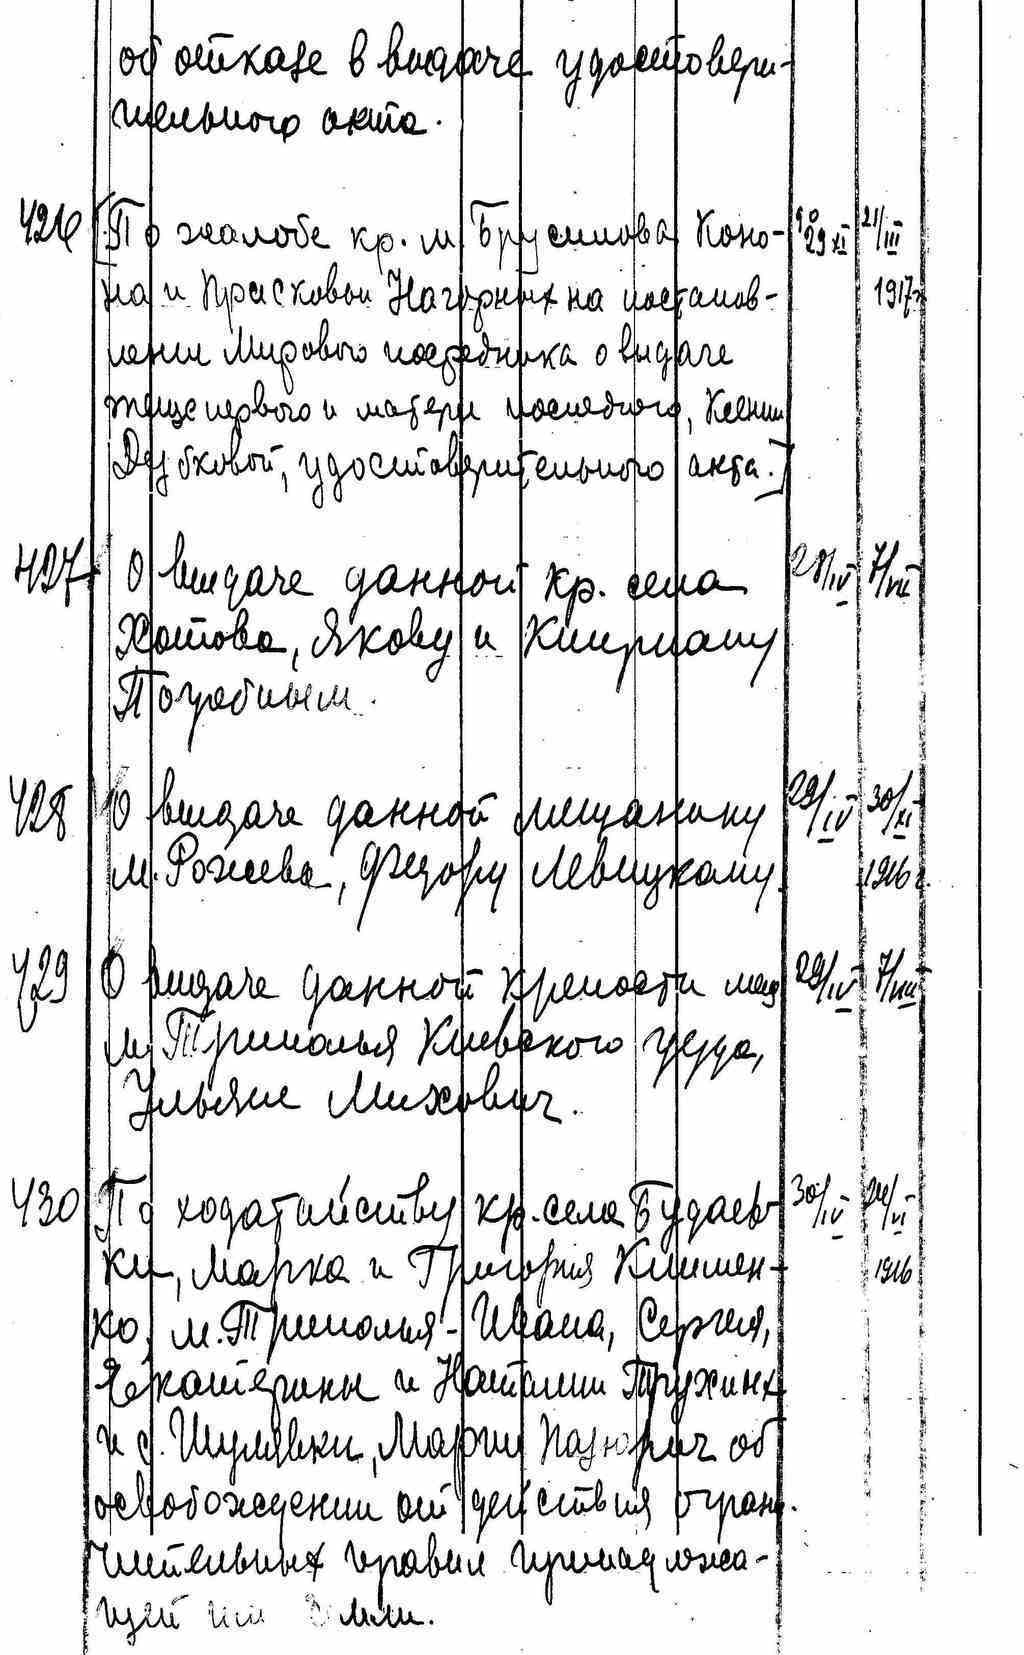 об отказе в выдаче удостовери-
тельного акта.
426 [По жалобе кр. м. Брусилова Коно- 29/XI 21/III
на и Прасковьи Нагорных на постанов- 1917 г.
лении Мирового посредника о выдаче
жене первого и матери последнего, Ксении
Дубковой, удостоверительного акта.]
427 О выдаче данной кр. села 28/IV 7/VII
Хотова, Якову и Киприану
Погребным.
428 О выдаче данной мещанину 29/IV 30/XI
м. Рожева, Федору Левицкому. 1916 г.
429 О выдаче данной крепости мещ 29/IV 7/VIII
м. Триполья Киевского уезда,
Ульяне Михович.
430 По ходатайству кр. села Будаев- 30/IV 24/VI
ки, Марка и Григория Климен- 1916
ко, м. Триполья - Ивана, Сергея,
Екатерины и Наталии Трухиных
и с. Шулявки, Марии об
освобождении от действия ограни-
чительных правил принадлежа-
щей им земли.